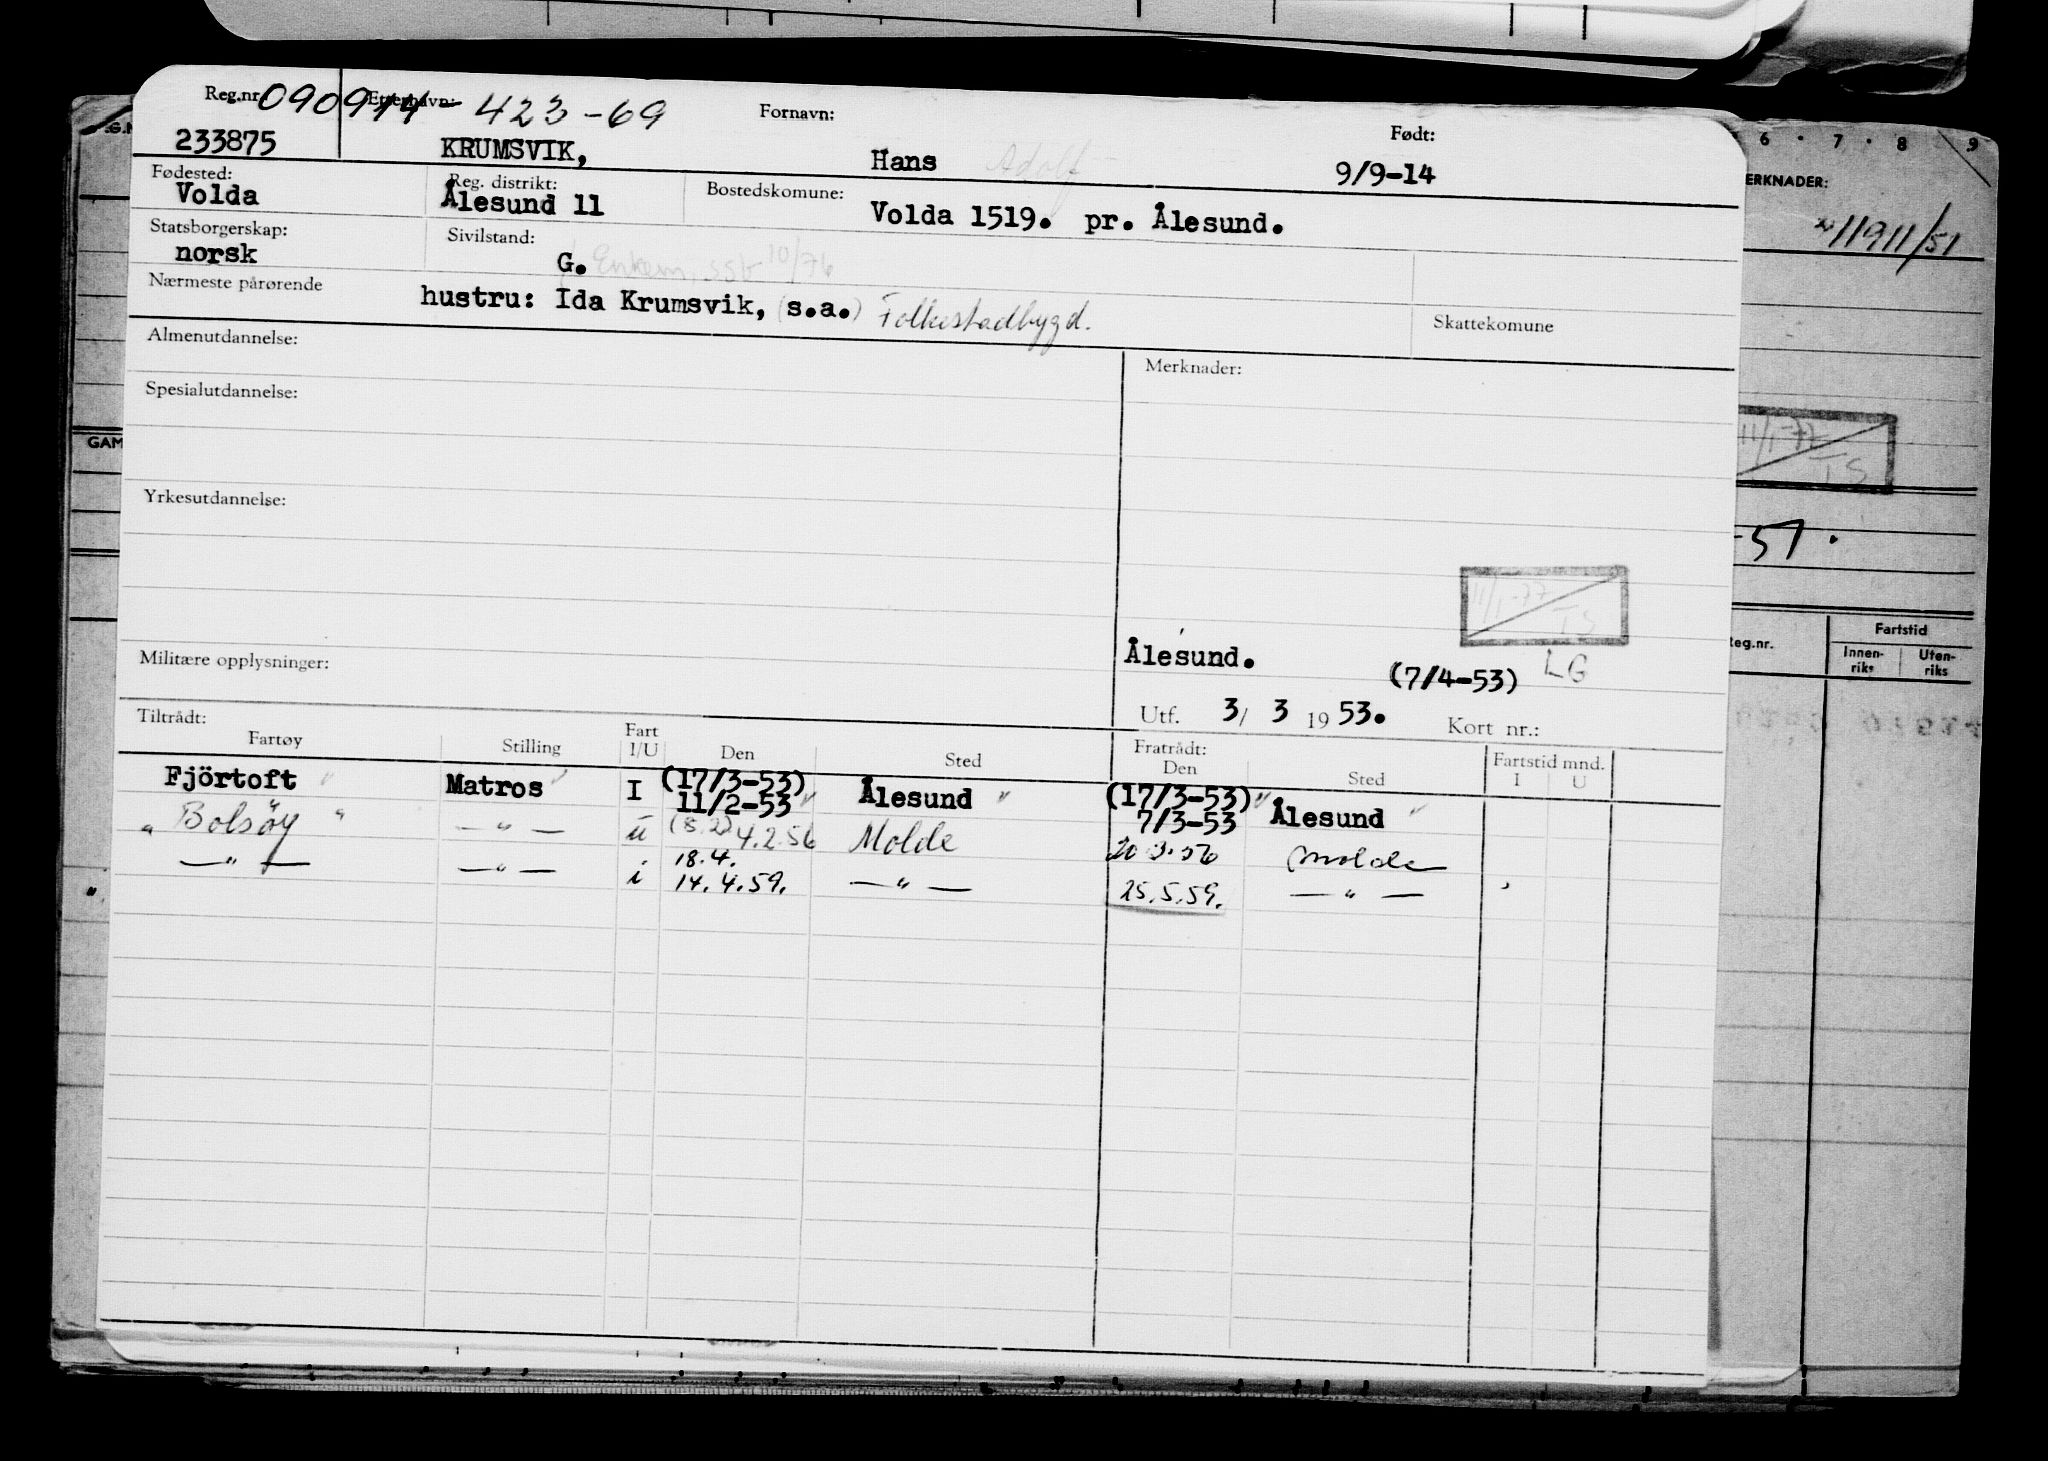 Reg.nr. 090914-423-69 Etternavn: Fornavn: Født:
233875 KRUMSVIK, Hans Adolf 9/9-14
Fødested: Reg. distrikt: Bostedskomune:
Volda Ålesund 11 Volda 1519. pr. Ålesund.
Statsborgerskap: Sivilstand:
norsk G. Enkem. SSB 10/76
Nærmeste pårørende hustru: Ida Krumsvik, (s.a.) Folkestadbygd. Skattekomune
Almenutdannelse: Merknader:
Spesialutdannelse:
Yrkesutdannelse:
11/1-77 TS
Militære opplysninger: Ålesund. (7/4-53) LG
Utf. 3/ 3 1953. Kort nr.:
Tiltrådt: Fratrådt:
Fartøy Stilling Fart I/U Den Sted Den Sted Fartstid mnd. I U
Fjörtoft Matros I (17/3-53) 11/2-53 Ålesund (17/3-53) 7/3-53 Ålesund
" Bolsøy " — " — u 4.2.56 Molde 20.3.56 Molde
— " — — " — i 18.4. 14.4.59. — " — 25.5.59. — " —
6 · 7 · 8 9
ERKNADER:
11911/51
11/1-77 TS
-51.
GAM
eg.nr. Fartstid
Innen-riks Uten-riks